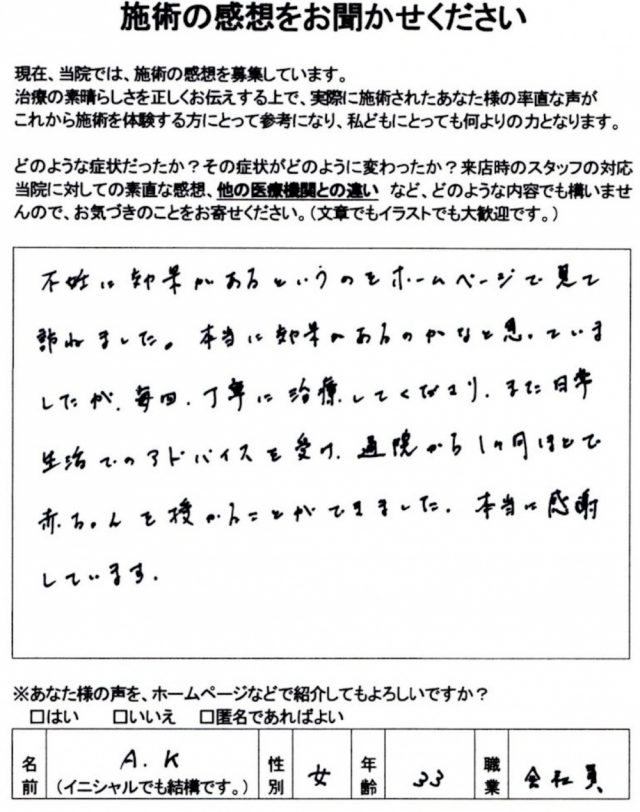 施術の感想をお聞かせください
現在、当院では、施術の感想を募集しています。
治療の素晴らしさを正しくお伝えする上で、実際に施術されたあなた様の率直な声が
これから施術を体験する方にとって参考になり、私どもにとっても何よりの力となります。
どのような症状だったか?その症状がどのように変わったか?来店時のスタッフの対応
当院に対しての素直な感想、他の医療機関との違い など、どのような内容でも構いませ
んので、お気づきのことをお寄せください。(文章でもイラストでも大歓迎です。)
不妊に効果があるというのをホームページで見て
訪ねました。本当に効果があるのかなと思っていま
したが、毎回、丁寧に治療してくださり、また日常
生活でのアドバイスを受け、通院から1ヶ月ほどで
赤ちゃんを授かることができました。本当に感謝
しています。
※あなた様の声を、ホームページなどで紹介してもよろしいですか?
□はい □いいえ □匿名であればよい
名前 A.K (イニシャルでも結構です。) 性別 女 年齢 33 職業 会社員